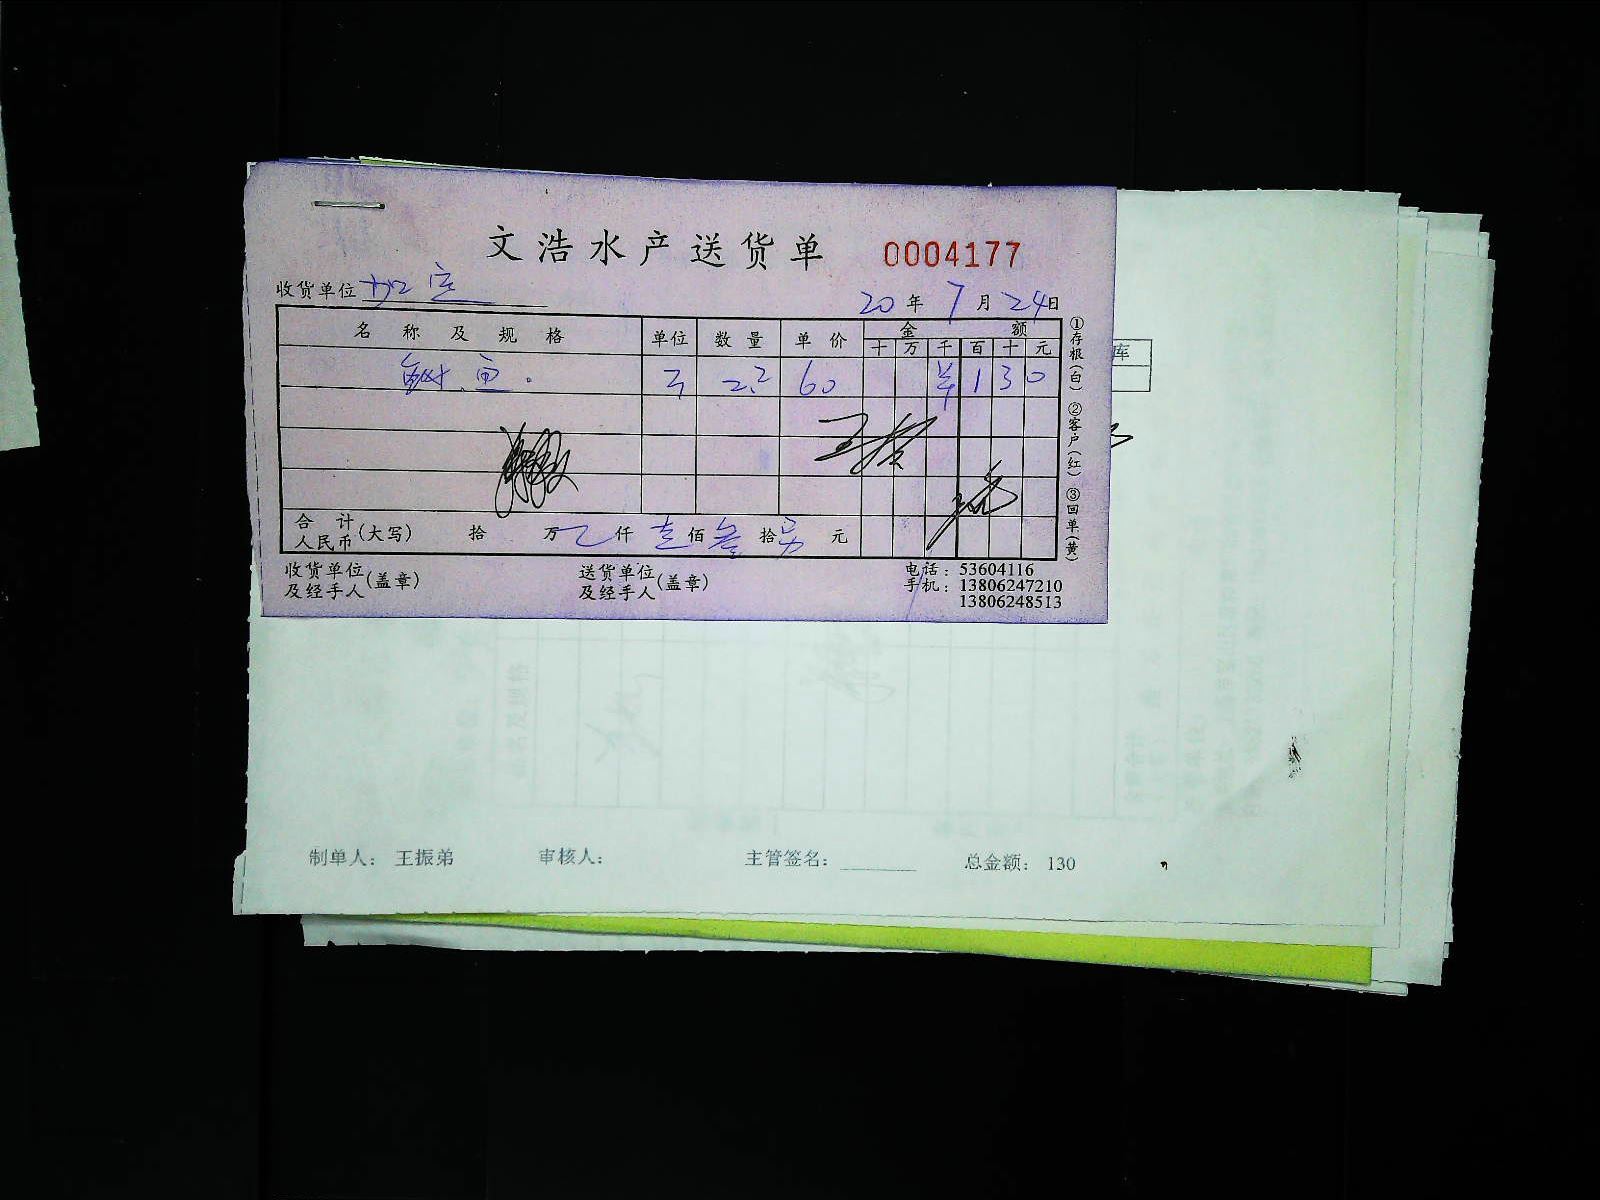 文浩水产送货单 0004177
收货单位
20年7月24日
名称及规格 单位 数量 单价 金额
十 万 千 百 十 元
鱼. 2.2 60 ¥ 1 3 0
合计人民币(大写) 拾 万 仟 壹 佰 叁 拾 另 元
收货单位及经手人(盖章) 送货单位及经手人(盖章) 电话：53604116
手机：13806247210
13806248513
①存根(白) ②客户(红) ③回单(黄)
库
制单人： 王振弟 审核人： 主管签名： 总金额： 130